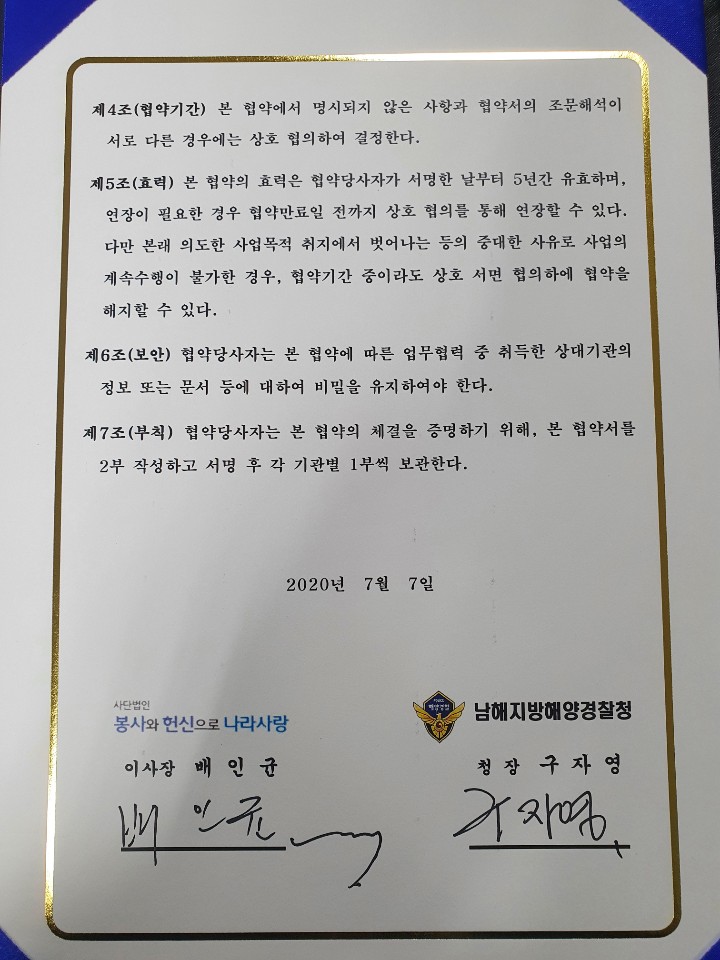 제4조(협약기간) 본 협약에서 명시되지 않은 사항과 협약서의 조문해석이
서로 다른 경우에는 상호 협의하여 결정한다.
제5조(효력) 본 협약의 효력은 협약당사자가 서명한 날부터 5년간 유효하며,
연장이 필요한 경우 협약만료일 전까지 상호 협의를 통해 연장할 수 있다.
다만 본래 의도한 사업목적 취지에서 벗어나는 등의 중대한 사유로 사업의
계속수행이 불가한 경우, 협약기간 중이라도 상호 서면 협의하에 협약을
해지할 수 있다.
제6조(보안) 협약당사자는 본 협약에 따른 업무협력 중 취득한 상대기관의
정보 또는 문서 등에 대하여 비밀을 유지하여야 한다.
제7조(부칙) 협약당사자는 본 협약의 체결을 증명하기 위해, 본 협약서를
2부 작성하고 서명 후 각 기관별 1부씩 보관한다.
2020년 7월 7일
사단법인
봉사와 헌신으로 나라사랑
해양경찰
남해지방해양경찰청
이사장 배 인 균
청 장 구 자 영
배 인 균
구 자영